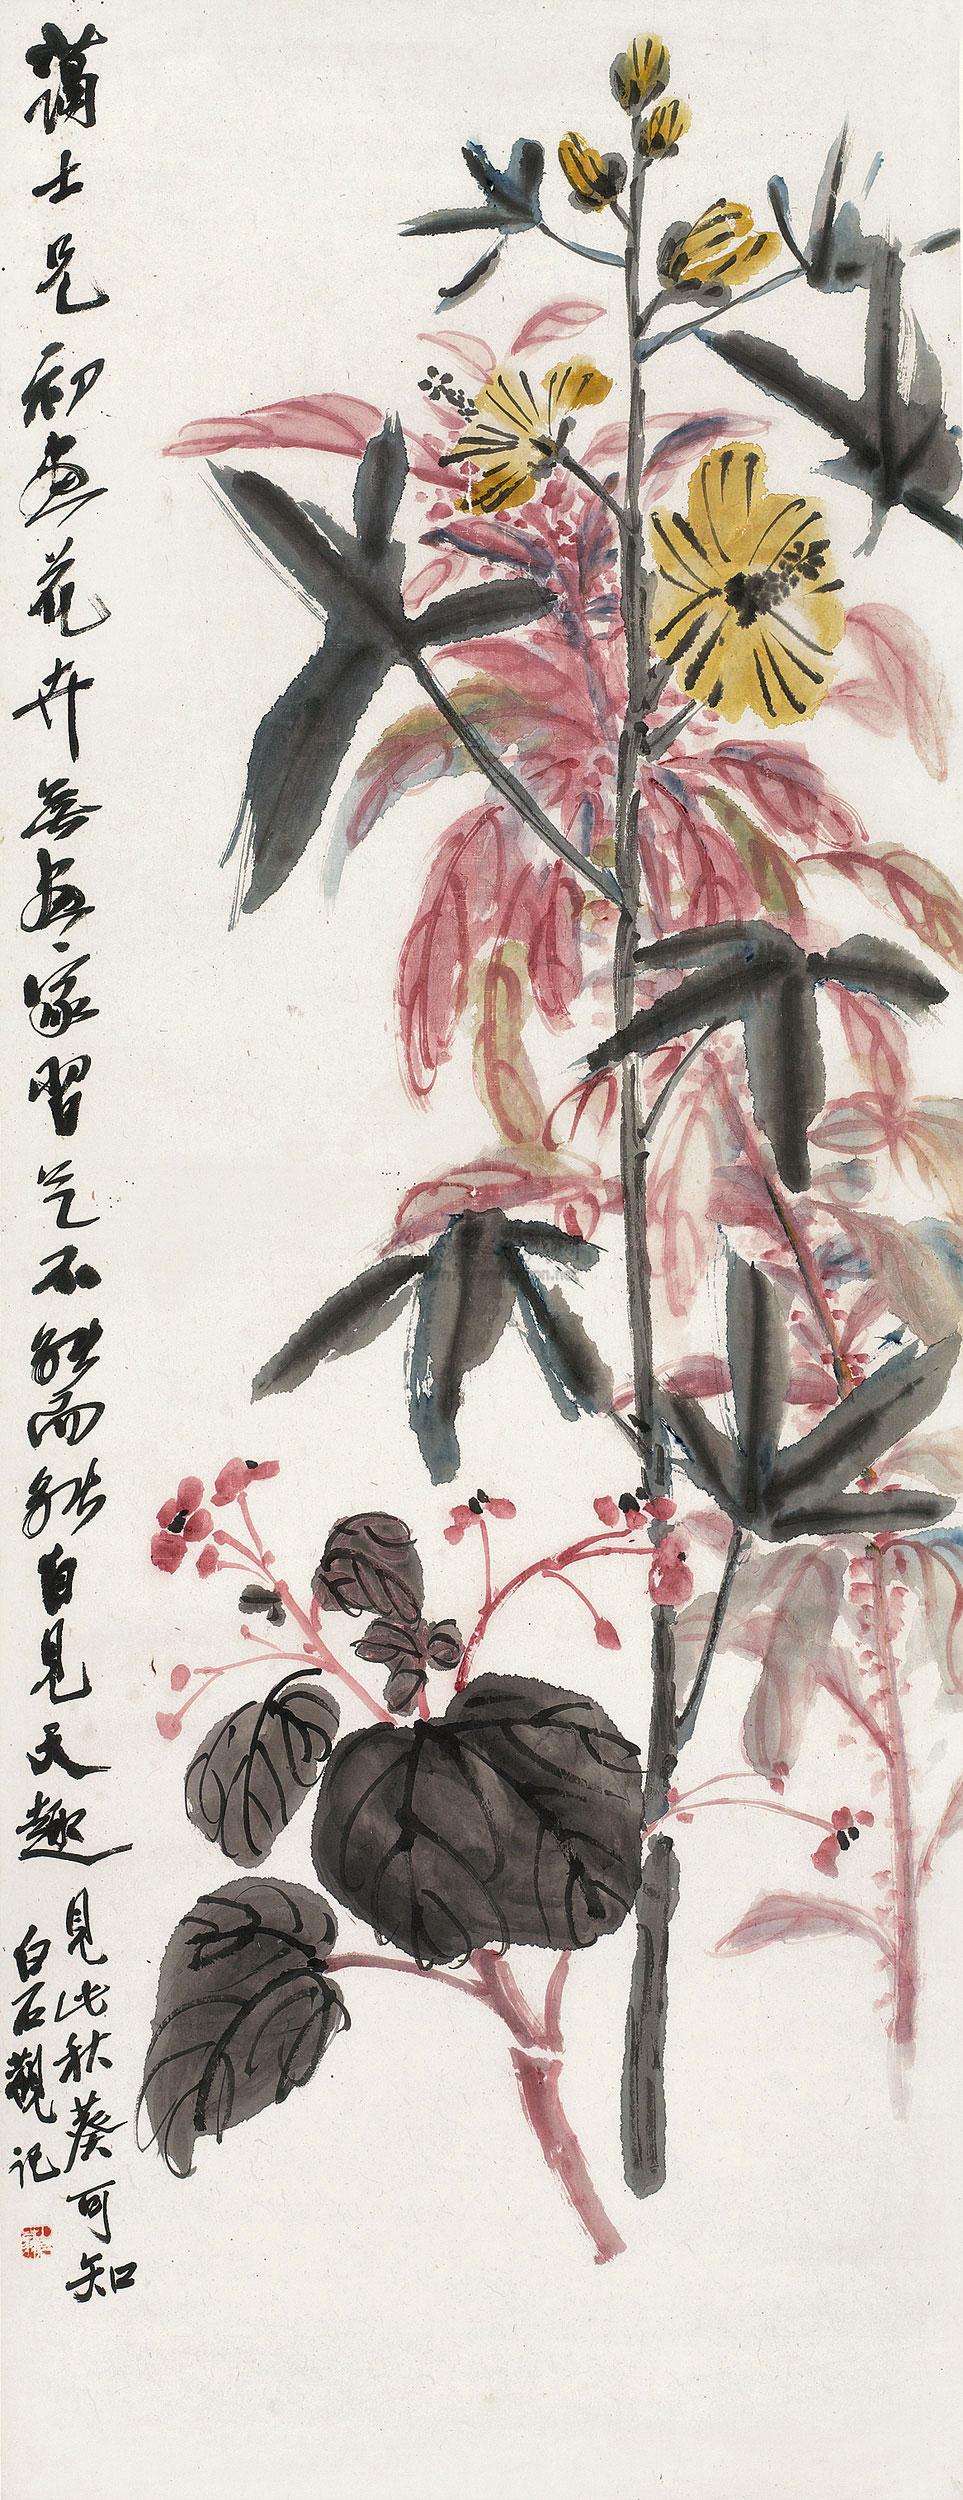 蔼士兄初画花卉无画家习气不能而能自见天趣
見此秋葵可知
白石觀記